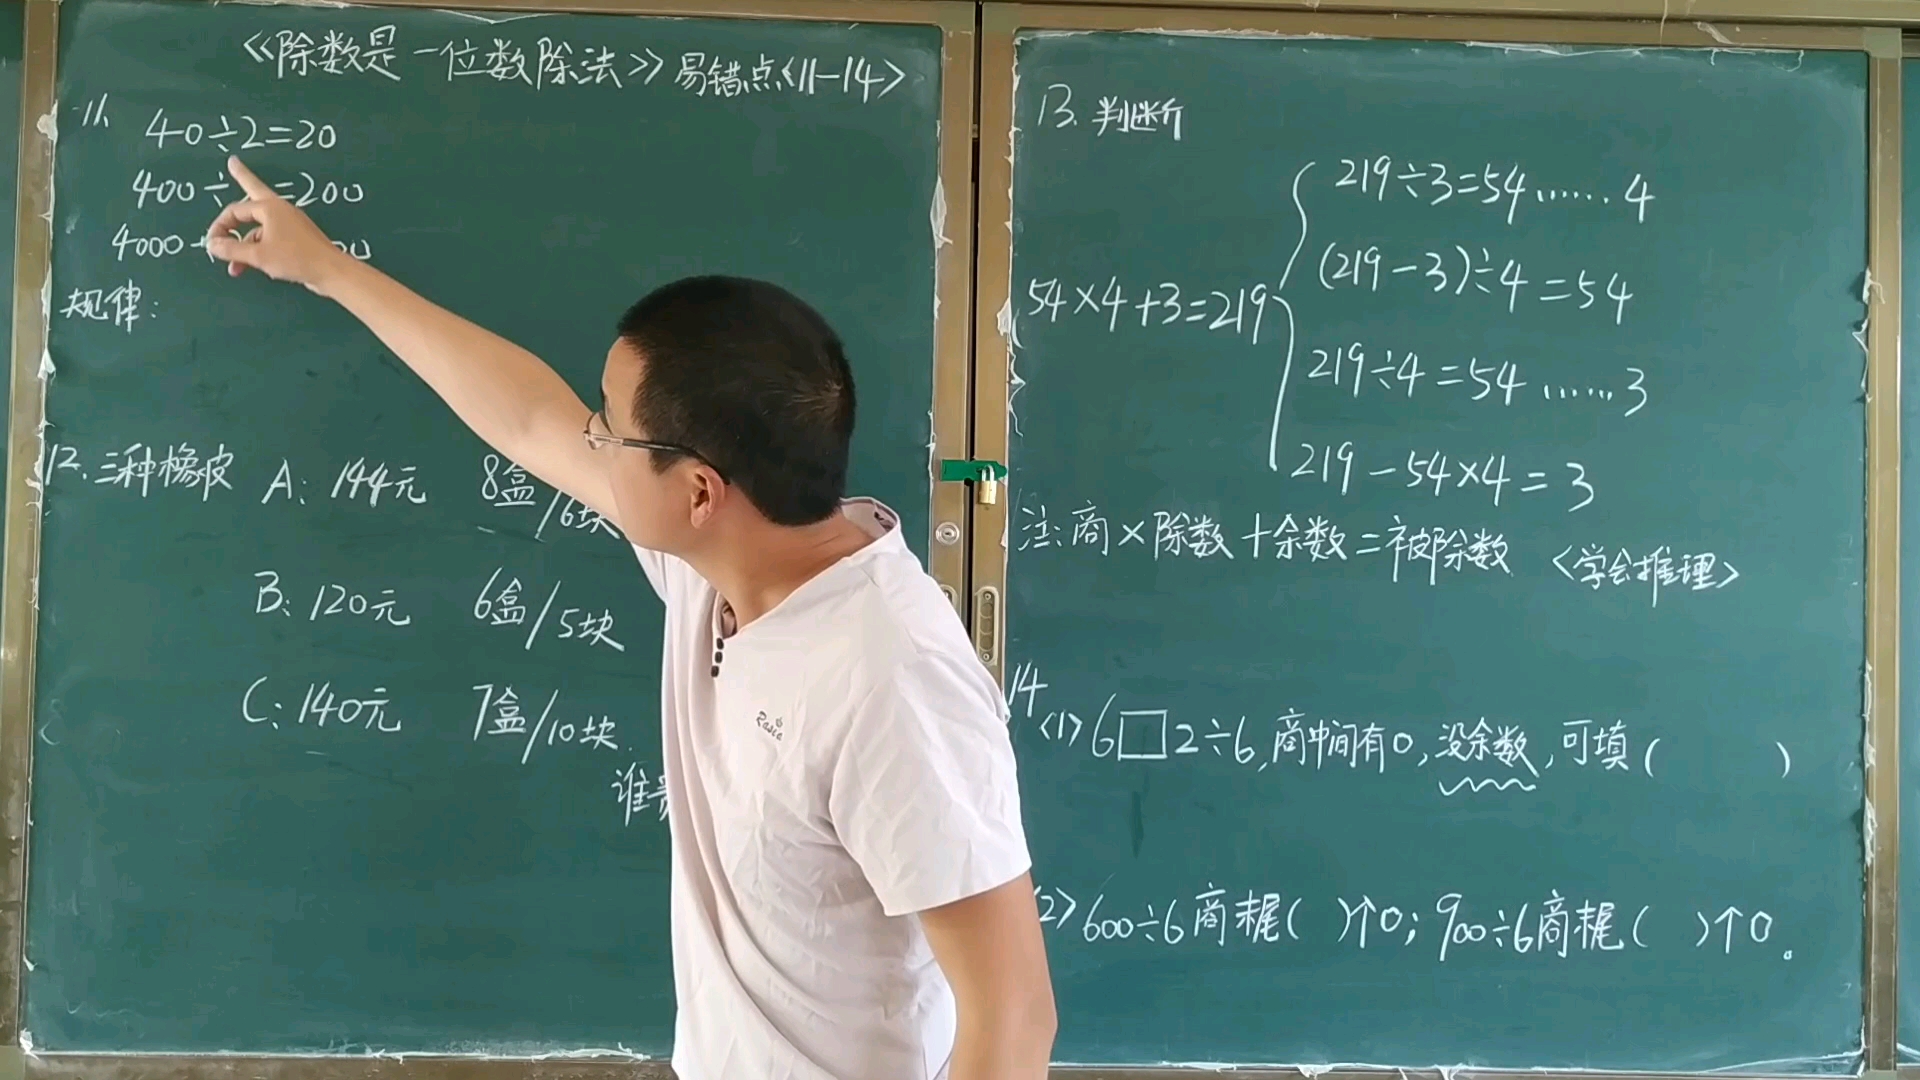 《除数是一位数除法》易错点<11-14>
11、
40÷2=20
400÷ =200
4000
规律:
12. 三种橡皮 A: 144元 8盒/6块
B: 120元 6盒/5块
C: 140元 7盒/10块.
谁贵
13. 判断
54×4+3=219
219÷3=54……4
(219-3)÷4=54
219÷4=54……3
219-54×4=3
注: 商×除数+余数=被除数 <学会推理>
14
<1> 6□2÷6, 商中间有0, 没余数, 可填( )
2> 600÷6商末尾( )个0; 900÷6商末尾( )个0。
Rasia